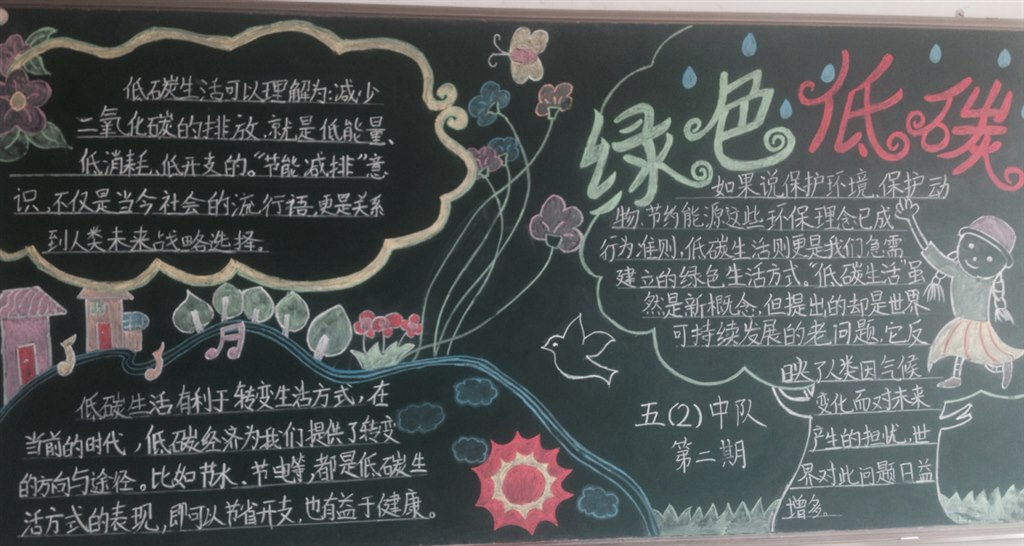 低碳生活可以理解为:减少
二氧化碳的排放.就是低能量、
低消耗、低开支的。“节能减排”意
识,不仅是当今社会的流行语,更是关系
到人类未来战略选择。
低碳生活有利于转变生活方式，在
当前的时代，低碳经济为我们提供了转变
的方向与途径。比如节水、节电等，都是低碳生
活方式的表现，即可以节省开支，也有益于健康。
绿色低碳
如果说保护环境、保护动
物、节约能源这些环保理念已成
行为准则,低碳生活则更是我们急需
建立的绿色生活方式。“低碳生活”虽
然是新概念,但提出的却是世界
可持续发展的老问题,它反
映了人类因气候
变化而对未来
产生的担忧,世
界对此问题日益
增多。
五(2)中队
第二期